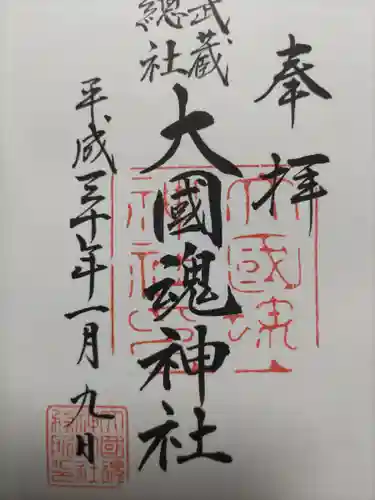 奉拝
武蔵
總社
大國魂神社
平成三十年一月九日